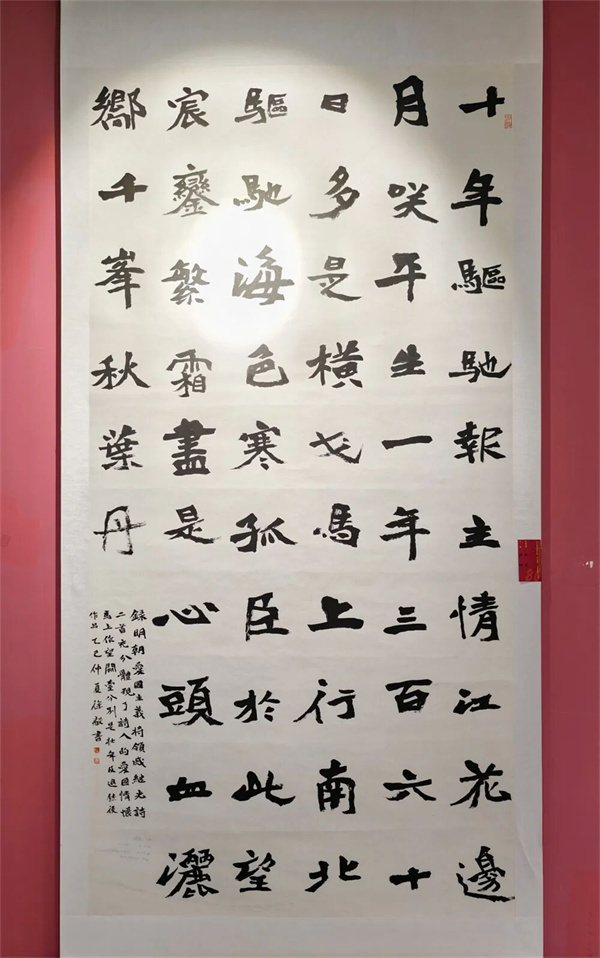 十年驅馳報主情江花邊
月咲平生一年三百六十
日多是橫戈馬上行南北
驅馳海色寒孤臣於此望
宸鑾繁霜盡是心頭血灑
嚮千峯秋葉丹
錄明朝愛國主義將領戚继光詩
二首充分體現了詩人的愛國情懷
馬上作望闕臺分别是壯年及退任後
作品乙巳仲夏徐書